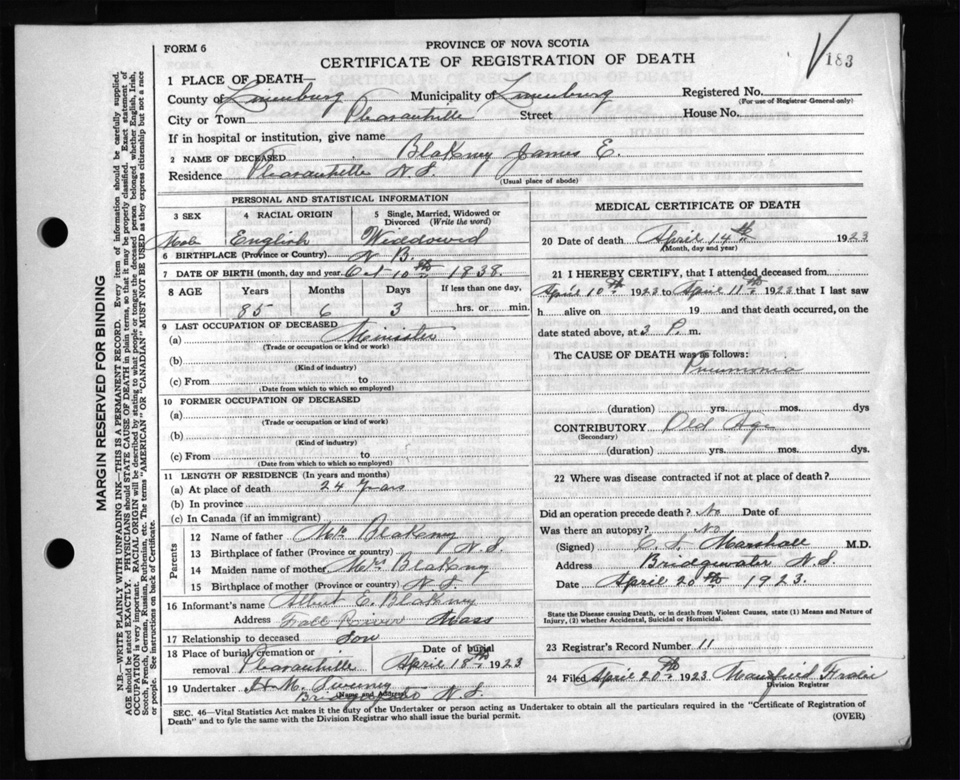 FORM 6
PROVINCE OF NOVA SCOTIA
CERTIFICATE OF REGISTRATION OF DEATH
183
1 PLACE OF DEATH—
County of Lunenburg Municipality of Lunenburg Registered No.
(For use of Registrar General only)
City or Town Pleasantville Street House No.
If in hospital or institution, give name
2 NAME OF DECEASED Blakney James E.
Residence Pleasantville N.S.
(Usual place of abode)
PERSONAL AND STATISTICAL INFORMATION
3 SEX 4 RACIAL ORIGIN 5 Single, Married, Widowed or Divorced (Write the word)
Male English Widdowed
6 BIRTHPLACE (Province or Country) N B.
7 DATE OF BIRTH (month, day and year) Oct 10th 1838.
8 AGE Years Months Days If less than one day,
85 6 3 hrs. or min.
9 LAST OCCUPATION OF DECEASED
(a) Minister
(Trade or occupation or kind or work)
(b)
(Kind of industry)
(c) From to
(Date from which to which so employed)
10 FORMER OCCUPATION OF DECEASED
(a)
(Trade or occupation or kind of work)
(b)
(Kind of industry)
(c) From to
(Date from which to which so employed)
11 LENGTH OF RESIDENCE (In years and months)
(a) At place of death 24 Years
(b) In province
(c) In Canada (if an immigrant)
Parents
12 Name of father Mr. Blakney
13 Birthplace of father (Province or country) N.S.
14 Maiden name of mother Mrs Blakny
15 Birthplace of mother (Province or country) N.S.
16 Informant's name Albert E. Blakney
Address Fall River Mass
17 Relationship to deceased Son
18 Place of burial cremation or removal Pleasantville Date of burial April 18th 1923
19 Undertaker H.M. Sweeney
(Name and Address) Bridgewater N.S.
MEDICAL CERTIFICATE OF DEATH
20 Date of death April 14th 1923
(Month, day and year)
21 I HEREBY CERTIFY, that I attended deceased from
April 10th 1923 to April 11th 1923 that I last saw
h alive on 19 and that death occurred, on the
date stated above, at 3 P. m.
The CAUSE OF DEATH was as follows:
Pneumonia
(duration) yrs. mos. dys
CONTRIBUTORY Old Age
(Secondary)
(duration) yrs. mos. dys.
22 Where was disease contracted if not at place of death?
Did an operation precede death? No Date of
Was there an autopsy? No
(Signed) C. S. Marshall M.D.
Address Bridgewater N.S.
Date April 20th 1923.
State the Disease causing Death, or in death from Violent Causes, state (1) Means and Nature of
Injury, (2) whether Accidental, Suicidal or Homicidal.
23 Registrar's Record Number 11
24 Filed April 20th 1923 Mansfield
Division Registrar
SEC. 46—Vital Statistics Act makes it the duty of the Undertaker or person acting as Undertaker to obtain all the particulars required in the "Certificate of Registration of
Death" and to fyle the same with the Division Registrar who shall issue the burial permit.
(OVER)
MARGIN RESERVED FOR BINDING
N.B.—WRITE PLAINLY WITH UNFADING INK—THIS IS A PERMANENT RECORD. Every item of information should be carefully supplied.
AGE should be stated EXACTLY. PHYSICIANS should STATE CAUSE OF DEATH in plain terms, so that it may be properly classified. Exact statement of
OCCUPATION is very important. RACIAL ORIGIN will be described by stating to what people or tongue the deceased person belonged whether English, Irish,
Scotch, French, German, Russian, Ruthenian, etc. The terms "AMERICAN" OR "CANADIAN" MUST NOT BE USED as they express citizenship but not a race
or people. See instructions on back of Certificate.